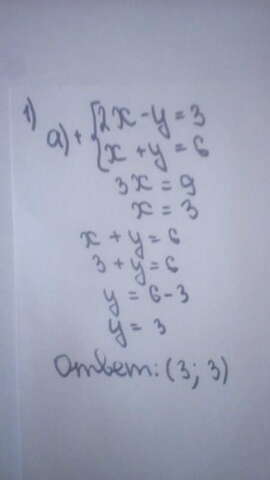 1)
а) + { 2x - y = 3
x + y = 6
3x = 9
x = 3
x + y = 6
3 + y = 6
y = 6 - 3
y = 3
Ответ: (3; 3)